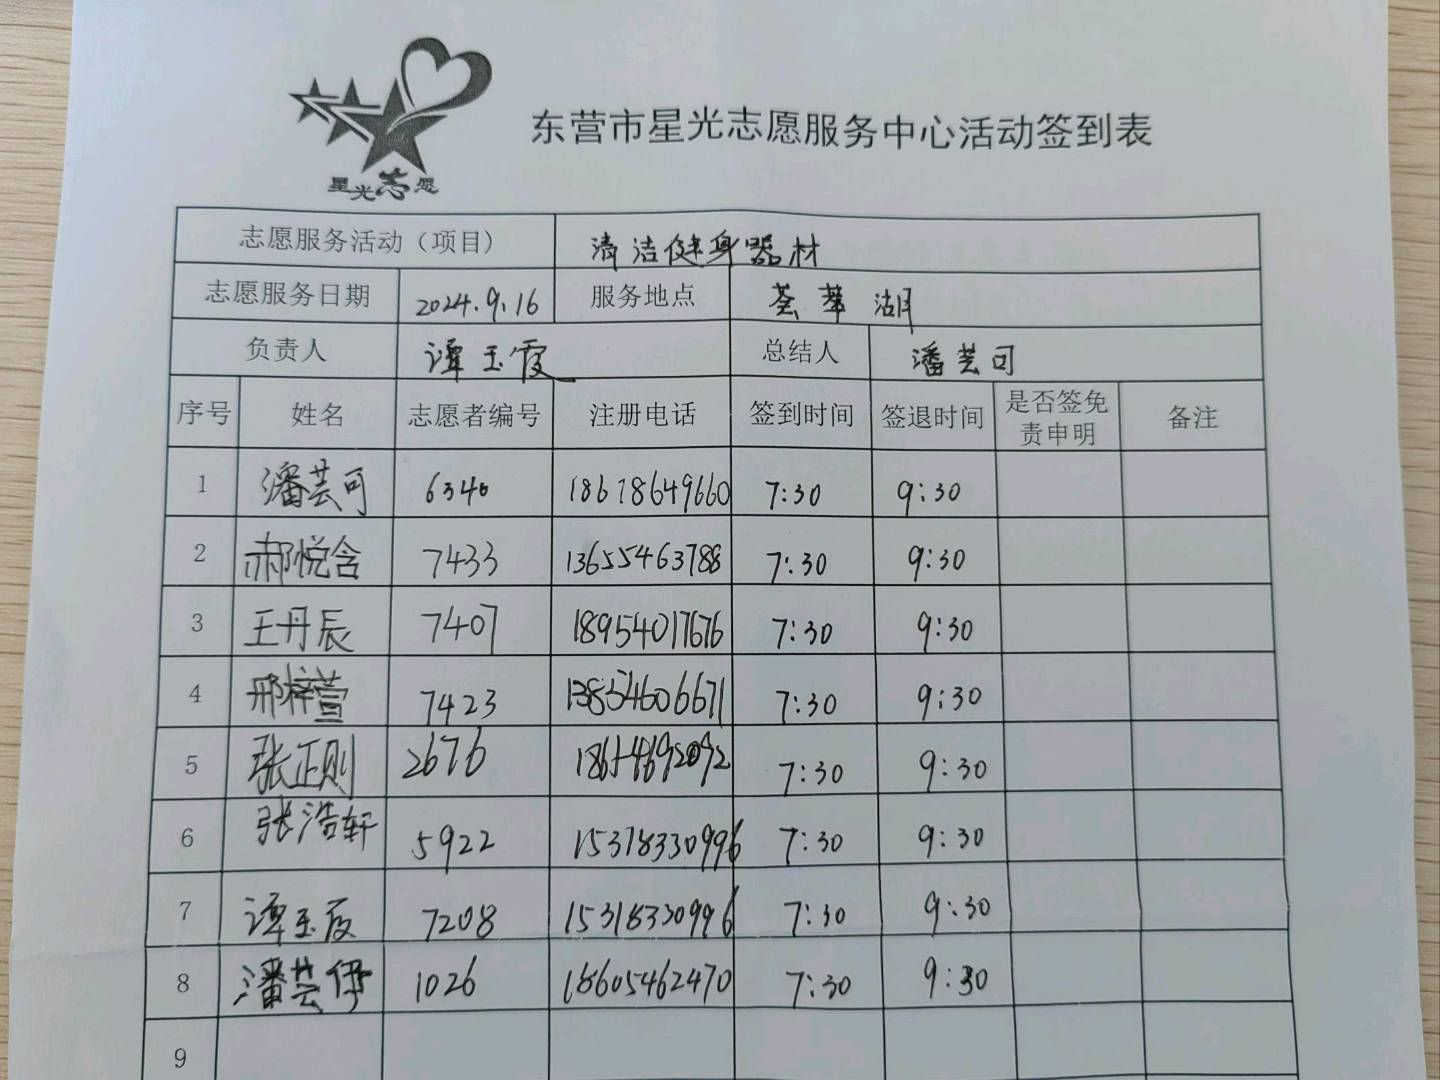 星光志愿
东营市星光志愿服务中心活动签到表
志愿服务活动（项目） 清洁健身器材
志愿服务日期 2024.9.16 服务地点 荟萃湖
负责人 谭玉霞 总结人 潘芸可
序号 姓名 志愿者编号 注册电话 签到时间 签退时间 是否签免责申明 备注
1 潘芸可 6340 18678649660 7:30 9:30
2 郝悦含 7433 13655463788 7:30 9:30
3 王丹辰 7407 18954017676 7:30 9:30
4 邢梓萱 7423 13854606671 7:30 9:30
5 张正则 2676 7:30 9:30
6 张浩轩 5922 15318330996 7:30 9:30
7 谭玉霞 7208 15318330996 7:30 9:30
8 潘芸伊 1026 18605462470 7:30 9:30
9